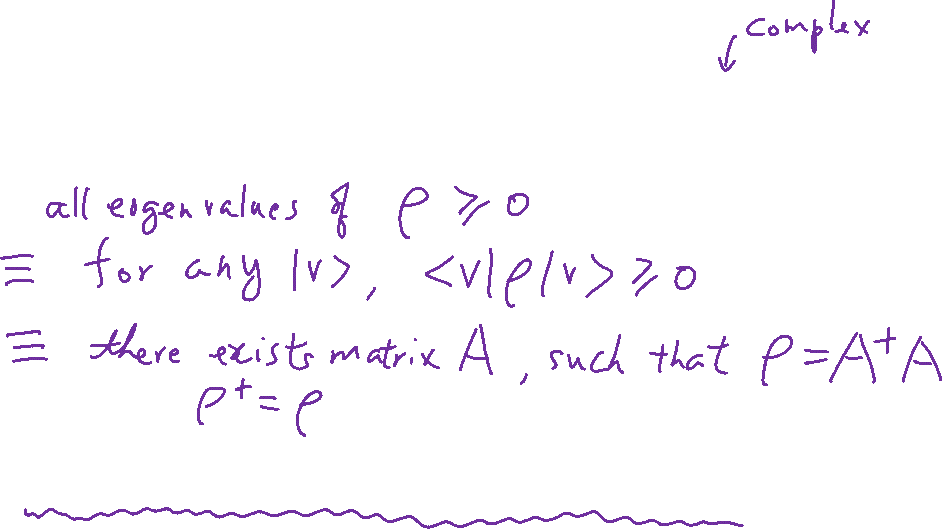 complex
all eigenvalues of ρ ⩾ 0
≡ for any |v>, <v|ρ|v> ⩾ 0
≡ there exists matrix A, such that ρ = A†A
ρ† = ρ